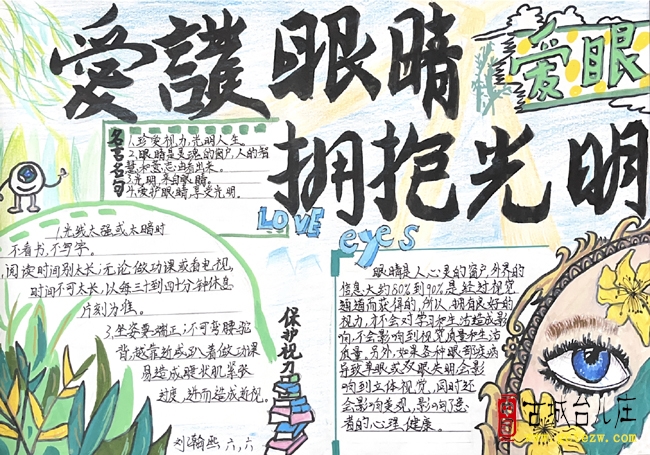 愛護眼睛
拥抱光明
爱眼
名言名句
1.珍爱视力,光明人生。
2.眼睛是灵魂的窗户,人的智
慧和意志由它出来。
3.光明,来自眼睛。
4.爱护眼睛,享受光明。
LOVE
eyes
1.光线太强或太暗时
不看书,不写字。
2.阅读时间别太长;无论做功课或看电视,
时间不可太长,以每三十到四十分钟休息
片刻为佳。
3.坐姿要端正;不可弯腰驼
背,越靠近或趴着做功课
易造成睫状肌紧张
过度,进而造成近视。
保护视力
刘瀚熙 六.六
眼睛是人心灵的窗户,外界的
信息大约80%到90%是经过视觉
通道而获得的,所以,拥有良好的
视力,才不会对学习和生活造成影
响,不会影响到视觉质量和生活
质量。另外,如果各种眼部疾病
导致单眼或双眼失明会影
响到立体视觉,同时还
会影响美观,影响患
者的心理健康。
古城台儿庄